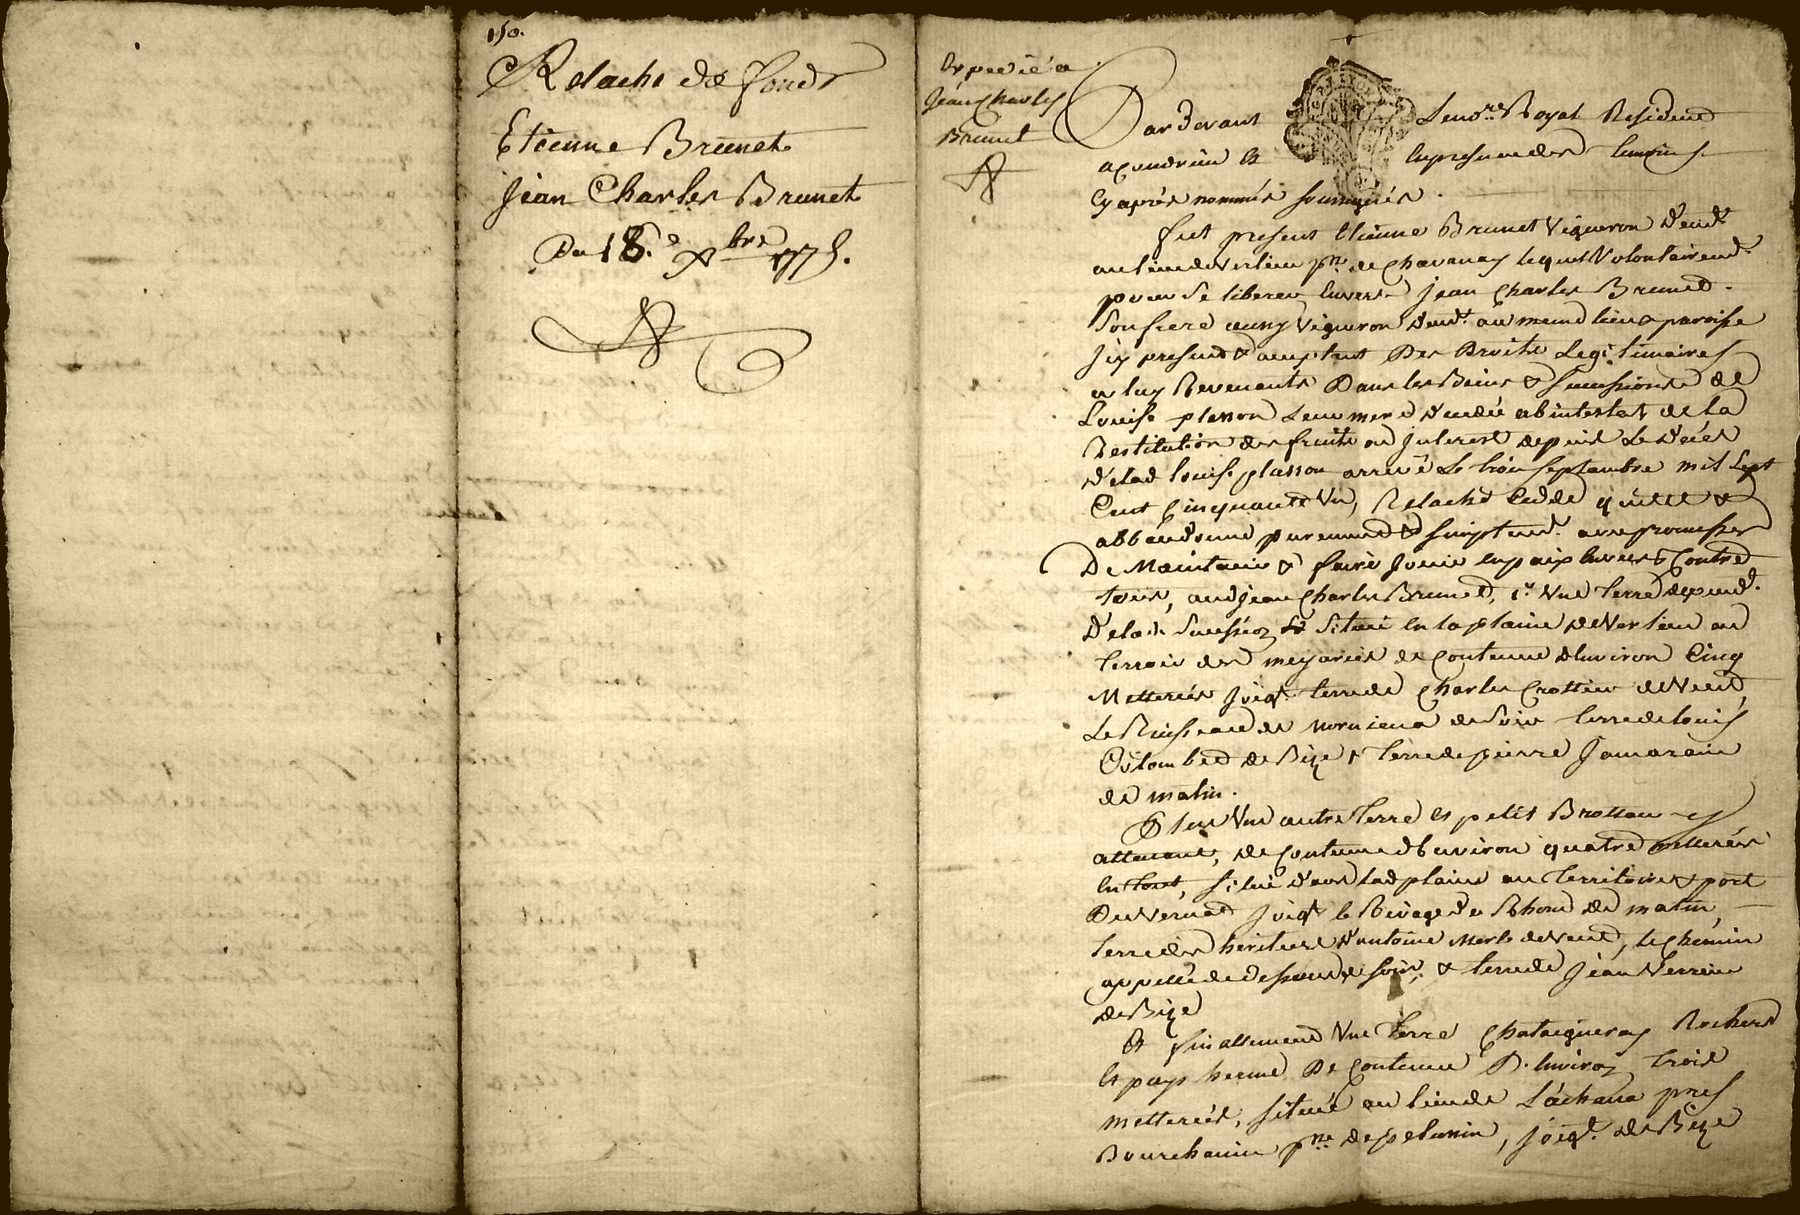 150.
Relache de fonds
Etienne Brunet
Jean Charles Brunet
Du 18.e Xbre 1775.
Expedié a
Jean Charles
Brunet
Pardevant Le no.re Royal Résident
a Condrieu Et En présence des temoins
Cy après nommés soussignés.
fut present Etienne Brunet Vigneron demt
au lieu de Verlieu p.sse de Chavanay lequel Volontairemt
pour se liberer Envers Jean Charles Brunet
Son frere aussy Vigneron demt. au meme lieu & paroisse
Jcy present & acceptant Des Droits Legitimaires
a luy Revenants Dans les Biens & Successions de
Louise plasson Leur mere décédée abintestat de la
Restitution des fruits ou Jnterest depuis Le décès
de lad. louise plasson arrivé Le trois septembre mil Sept
Cent Cinquante Un, Relache Cedde quitte &
abbandonne purement & simplemt. avec promesse
De Maintenir & faire Jouir En paix Envers & Contre
tous, aud. Jean Charles Brunet, 1.o Une terre dépendt.
de lad. Succession Située En la plaine de Verlieu au
terroir des de Contenue d'Environ Cinq
Metterées Joigt. terre de Charles Crottier de Vent,
Le Ruisseau de de soir terre de louis
Colombet de Bize & terre de pierre Jamarain
de matin.
Plus Une autre terre Et petit Brotteau
attenant, de Contenue d'Environ quatre metterées
En tout, situé dans lad. plaine au territoire & port
Du Vernat Joigt. le Rivage du Rhone de matin,
terre des heritiers d'antoine Merle de vent, le Chemin
appellé de dessous de soir, & terre de Jean Verrier
de Bize
Et finallement Une Terre Chataigneray Rochers
Et pays herme De Contenue D'Environ trois
metterées, située au lieu de Lachana près
Bourchanin p.sse de pelussin, Joigt. de Bize